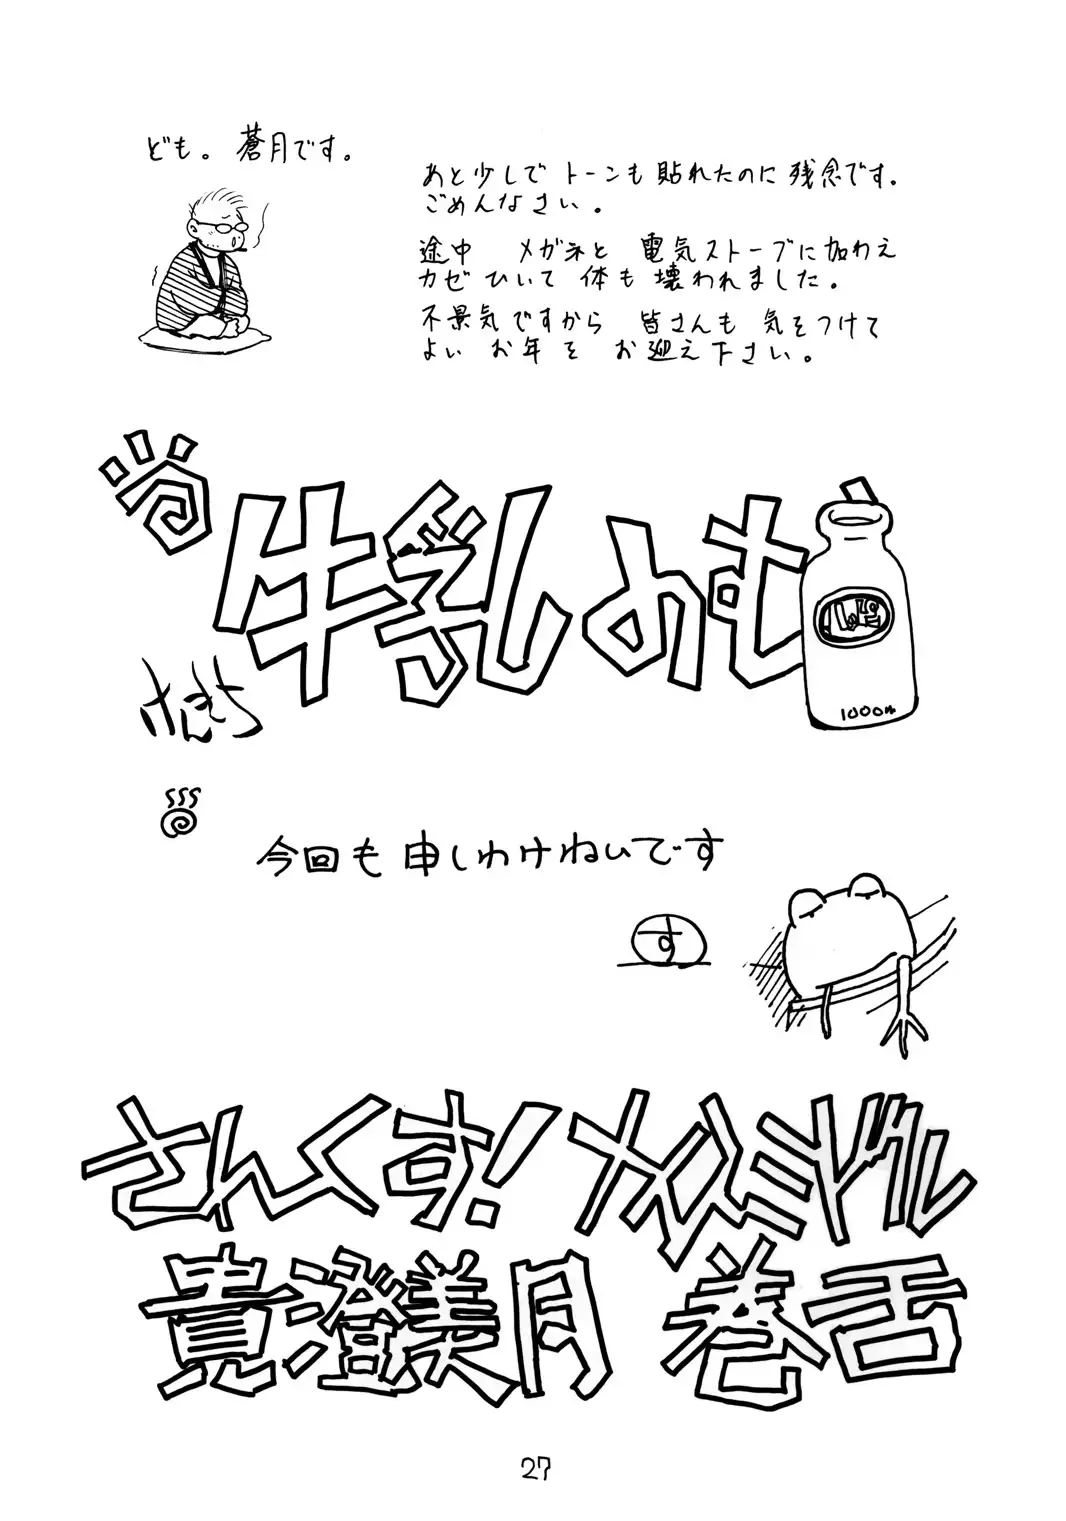 ども。蒼月です。
あと少しでトーンも貼れたのに残念です。
ごめんなさい。
途中 メガネと 電気ストーブに加わえ
カゼひいて体も壊われました。
不景気ですから 皆さんも 気をつけて
よい お年を お迎え下さい。
牛乳のむ
1000
けんきち
今回も申しわけねいです
す
さんくす!ナイスミドル
貴澄美月 巻舌
27